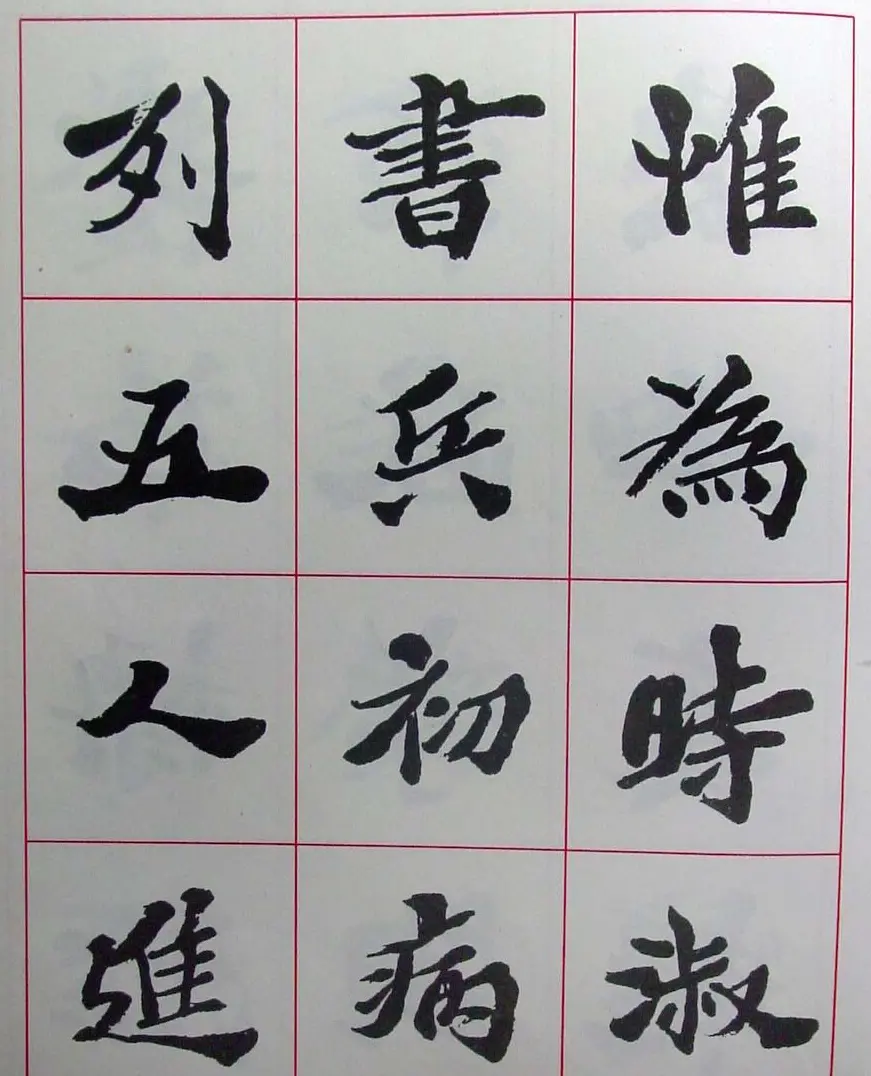 惟為時淑
書兵初病
列五人進